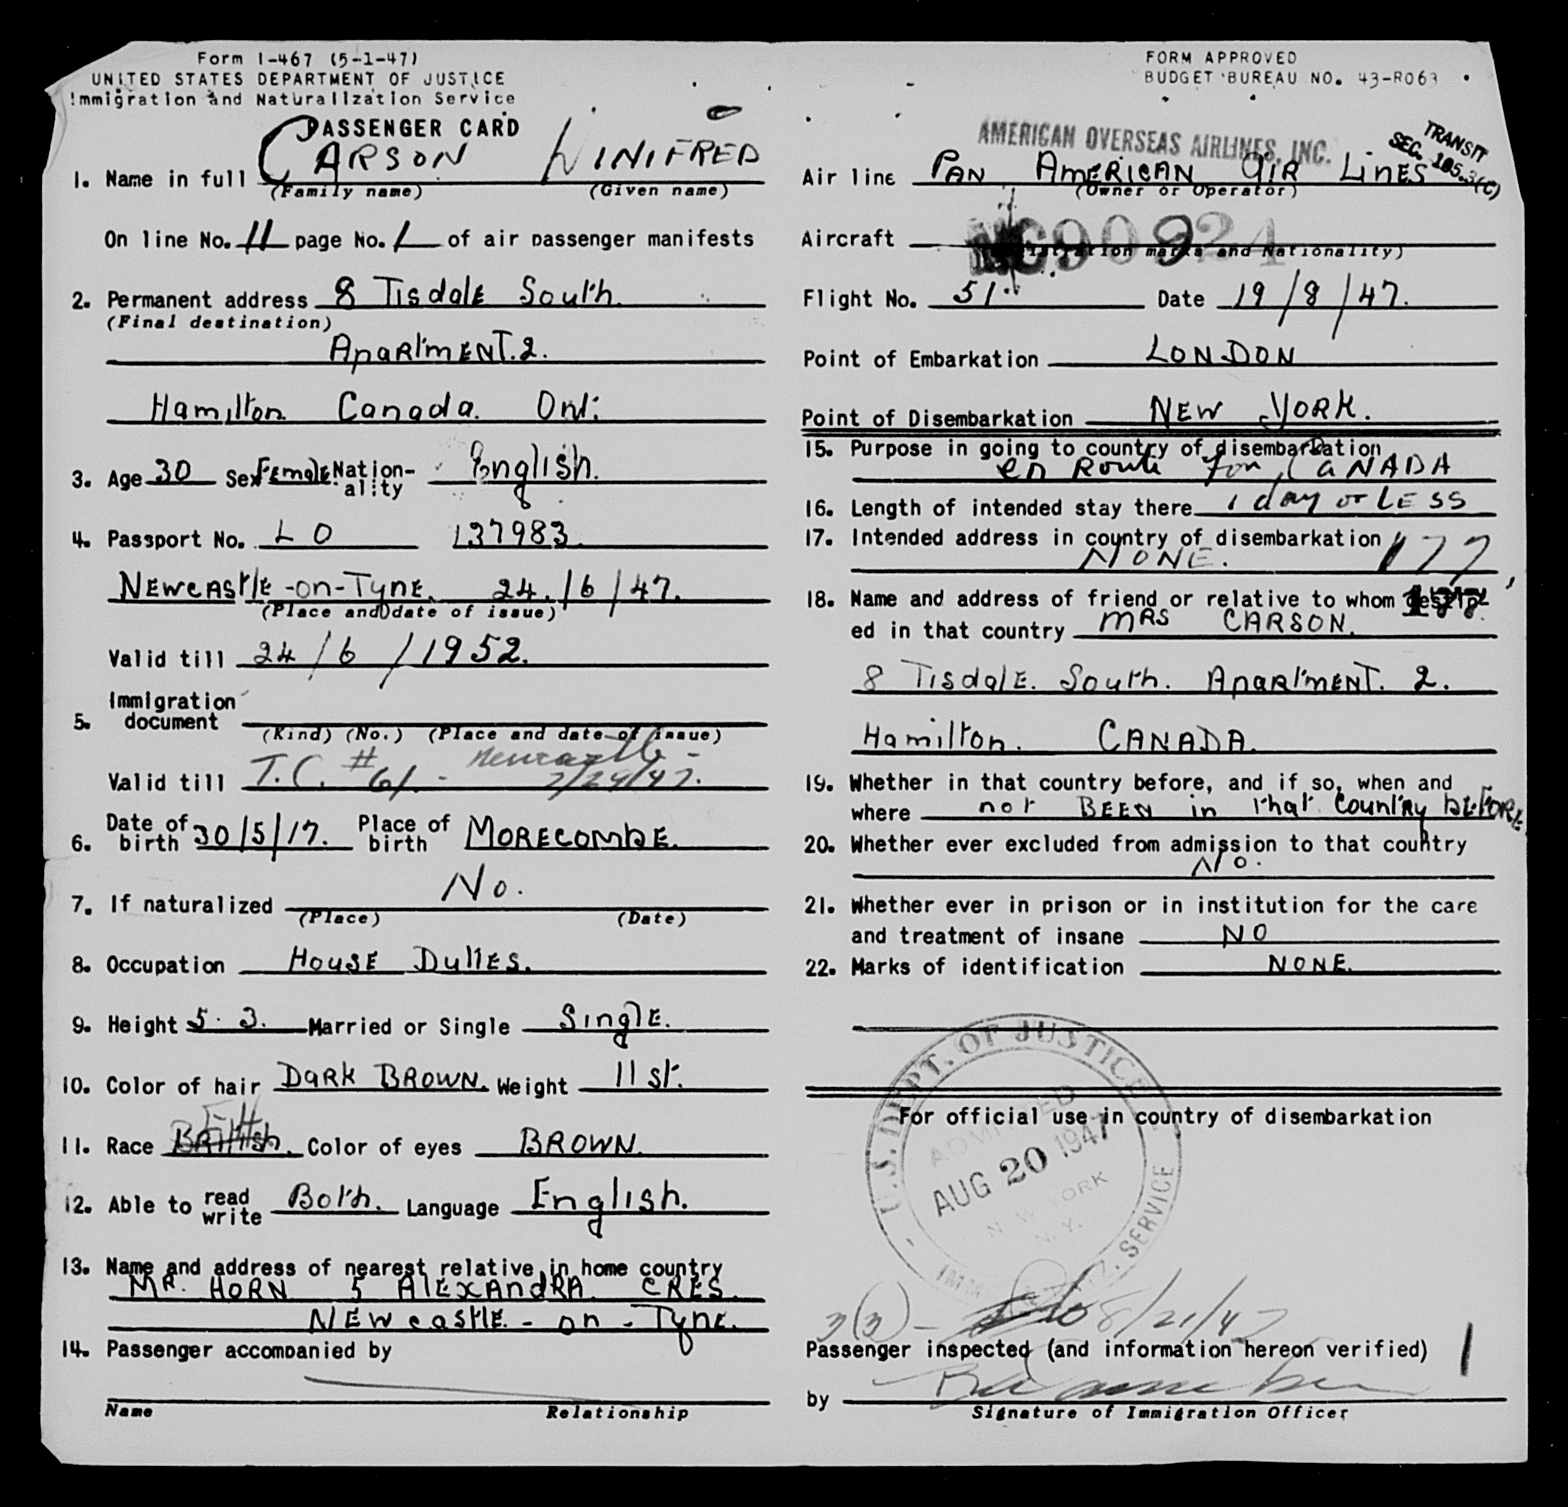 Form I-467 (5-1-47)
UNITED STATES DEPARTMENT OF JUSTICE
Immigration and Naturalization Service
PASSENGER CARD
1. Name in full CARSON WINIFRED
(Family name) (Given name)
On line No. 11 page No. 1 of air passenger manifests
2. Permanent address 8 Tisdale South.
(Final destination)
Apartment. 2.
Hamilton Canada. Ont:
3. Age 30 Sex Female. Nation-ality English.
4. Passport No. LO 137983.
Newcastle-on-Tyne. 24./6/47.
(Place and date of issue)
Valid till 24/6/1952.
5. Immigration document
(Kind) (No.) (Place and date of issue)
Newcastle-
Valid till T.C. #61. - 7/24/47.
6. Date of birth 30/5/17. Place of birth MORECOMBE.
7. If naturalized No.
(Place) (Date)
8. Occupation House Duties.
9. Height 5.3. Married or Single Single.
10. Color of hair Dark BROWN. Weight 11 st.
11. Race British. Color of eyes BROWN.
12. Able to read write Both. Language English.
13. Name and address of nearest relative in home country
MR. HORN 5 ALEXANDRA CRES.
NEWcastle - on - Tyne.
14. Passenger accompanied by
Name Relationship
FORM APPROVED
BUDGET BUREAU NO. 43-R063
AMERICAN OVERSEAS AIRLINES, INC.
TRANSIT
SEC. 105.3(C)
Air line PAN AMERICAN AIR LINES
(Owner or Operator)
Aircraft NC90924
(Registration marks and Nationality)
Flight No. 51. Date 19/8/47.
Point of Embarkation LONDON
Point of Disembarkation NEW YORK.
15. Purpose in going to country of disembarkation
en Route for CANADA
16. Length of intended stay there 1 day or LESS
17. Intended address in country of disembarkation
NONE. 177
18. Name and address of friend or relative to whom destin-
ed in that country MRS CARSON.
8 Tisdale. South. Apartment. 2.
Hamilton. CANADA.
19. Whether in that country before, and if so, when and
where not BEEN in that Country BEFORE.
20. Whether ever excluded from admission to that country
No.
21. Whether ever in prison or in institution for the care
and treatment of insane NO
22. Marks of identification NONE.
For official use in country of disembarkation
U.S. DEPT. OF JUSTICE
ADMITTED
AUG 20 1947
NEW YORK
N.Y.
SERVICE
3(3) - 8/21/47
Passenger inspected (and information hereon verified)
by
Signature of Immigration Officer